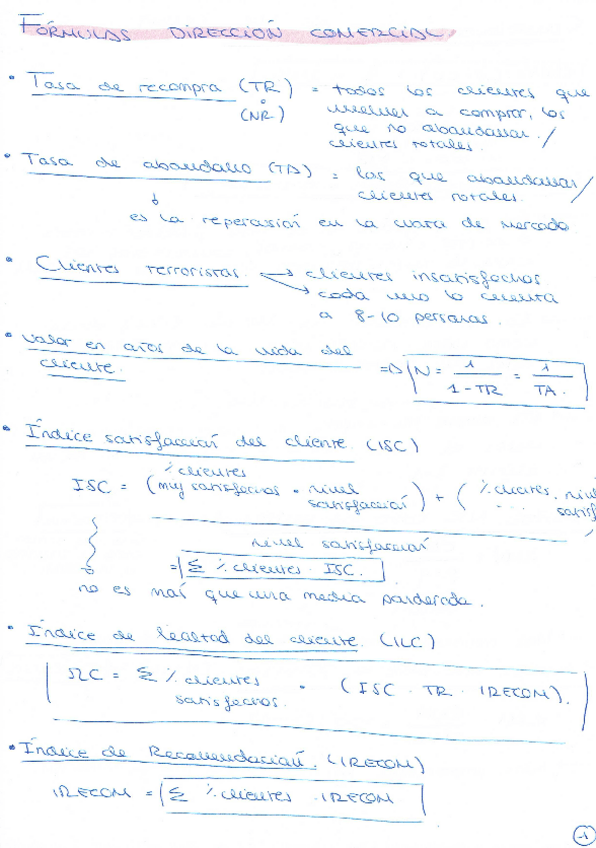 FÓRMULAS DIRECCIÓN COMERCIAL.
• Tasa de recompra (TR) = todos los clientes que
(NR) vuelven a comprar, los
que no abandonan /
clientes totales.
• Tasa de abandono (TA) = los que abandonan /
clientes totales.
es la repercusión en la cuota de mercado
• Clientes terroristas. → clientes insatisfechos
→ cada uno lo cuenta
a 8-10 personas.
• Valor en años de la vida del
cliente. => N = 1 / (1 - TR) = 1 / TA.
• Índice satisfacción del cliente. (ISC)
% clientes
ISC = (muy satisfechos · nivel satisfacción) + (% clientes ... · nivel satisf
nivel satisfacción
= Σ % clientes · ISC.
no es más que una media ponderada.
• Índice de lealtad del cliente. (ILC)
ILC = Σ % clientes satisfechos. · (ISC · TR · IRECOM).
• Índice de Recomendación. (IRECOM)
IRECOM = Σ % clientes · IRECOM
1